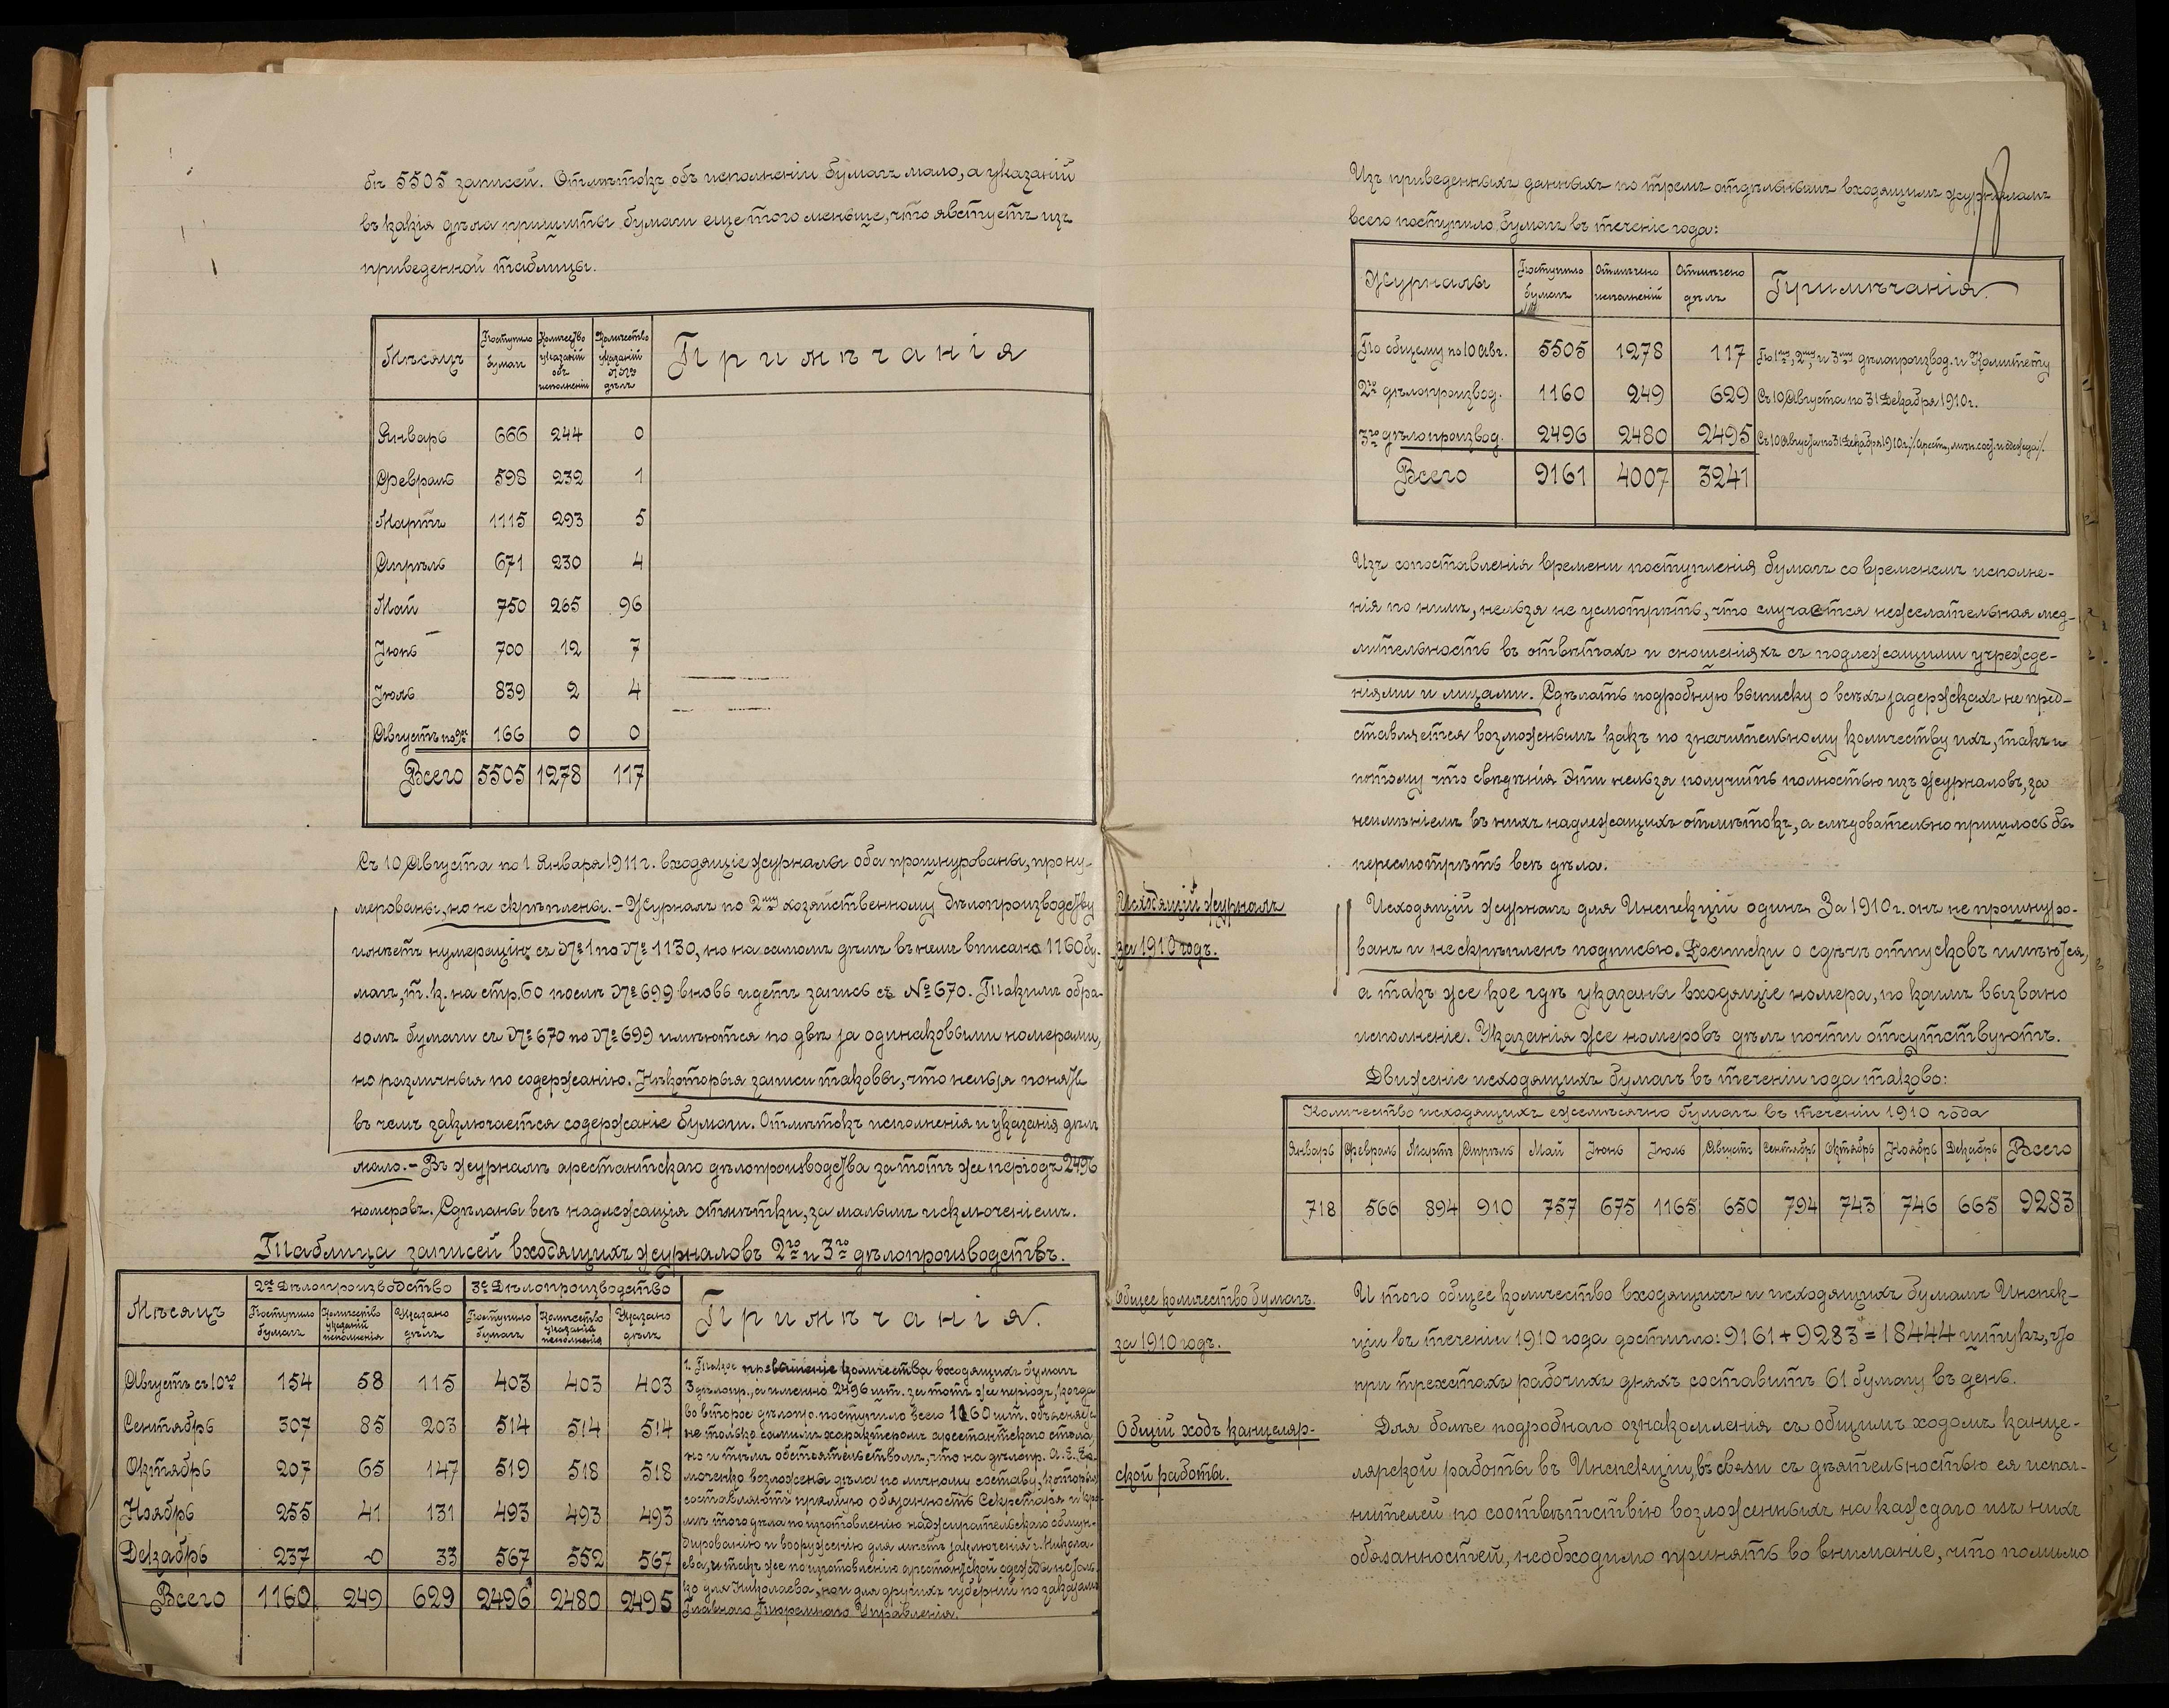 бѣ 5505 записей. Отмѣтокъ объ исполненіи бумагъ мало, а указаній
въ какія дѣла пришиты бумаги еще того меньше, что явствуетъ изъ
приведенной таблицы.
Мѣсяцъ Поступило бумагъ Количество указаній объ исполненіи Количество указаній №№ дѣлъ Примѣчанія
Январь 666 244 0
Февраль 598 232 1
Мартъ 1115 293 5
Апрѣль 671 230 4
Май 750 265 96
Іюнь 700 12 7
Іюль 839 2 4
Августъ по 9ое 166 0 0
Всего 5505 1278 117
Съ 10 Августа по 1 Января 1911 г. входящіе журналы оба прошнурованы, прону-
мерованы, но не скрѣплены. – Журналъ по 2му хозяйственному дѣлопроизводству
имѣетъ нумерацію съ № 1 по № 1130, но на самомъ дѣлѣ въ нем вписано 1160 бу-
магъ, т. к. на стр. 60 послѣ № 699 вновь идетъ запись съ № 670. Такимъ обра-
зомъ бумаги съ № 670 по № 699 имѣются по двѣ за одинаковыми номерами,
но различныя по содержанію. Нѣкоторыя записи таковы, что нельзя понять
въ чемъ заключается содержаніе бумаги. Отмѣтокъ исполненія и указанія дѣлъ
мало. – Въ журналѣ арестантскаго дѣлопроизводства за тотъ же періодъ 2496
номеровъ. Сдѣланы всѣ надлежащія отмѣтки, за малымъ исключеніемъ.
Таблица записей входящихъ журналовъ 2го и 3го дѣлопроизводствъ.
Мѣсяцъ 2ое Дѣлопроизводство 3е Дѣлопроизводство Примѣчанія.
Поступило бумагъ Количество указаній исполненія Указано дѣлъ Поступило бумагъ Количество указаній исполненія Указано дѣлъ
Августъ съ 10го 154 58 115 403 403 403
Сентябрь 307 85 203 514 514 514
Октябрь 207 65 147 519 518 518
Ноябрь 255 41 131 493 493 493
Декабрь 237 0 33 567 552 567
Всего 1160 249 629 2496 2480 2495
1. Такое количества входящихъ бумагъ
3 дѣлопр., а именно 2496 шт. за тотъ же періодъ, когда
во второе дѣлопр. поступило всего 1160 шт. объясняется
не только самимъ характеромъ арестантскаго стола,
но и тѣмъ обстоятельствомъ, что на дѣлопр. А. Е.
возложены дѣла по личному составу, которыя
составляютъ прямую обязанность Секретаря и кро-
мѣ того дѣла по изготовленію надзирательскаго обмун-
дированію и вооруженію для мѣстъ заключенія г. Никола-
ева, а такъ же по изготовленію арестантской одежды не толь-
ко для Николаева, но и для другихъ губерній по заказамъ
Главнаго Тюремнаго Управленія.
Изъ приведенныхъ данныхъ по тремъ отдѣльнымъ входящимъ журналамъ
всего поступило бумагъ въ теченіе года:
Журналы Поступило бумагъ Отмѣчено исполненій Отмѣчено дѣлъ Примѣчанія.
По общему по 10 Авг. 5505 1278 117 По 1му, 2му и 3му дѣлопроизвод. и Комитету
2го дѣлопроизвод. 1160 249 629 Съ 10 Августа по 31 Декабря 1910 г.
3го дѣлопроизвод. 2496 2480 2495 Съ 10 Августа по 31 Декабря 1910 г. /Арест., личн. сост. и одежда/.
Всего 9161 4007 3241
Изъ сопоставленія времени поступленія бумагъ со временемъ исполне-
нія по нимъ, нельзя не усмотрѣть, что случается нежелательная мед-
лительность въ отвѣтахъ и сношеніяхъ съ подлежащими учрежде-
ніями и лицами. Сдѣлать подробную выписку о всѣхъ задержкахъ не пред-
ставляется возможнымъ какъ по значительному количеству ихъ, такъ и
потому что свѣдѣнія эти нельзя получить полностью изъ журналовъ, за
неимѣніемъ въ нихъ надлежащихъ отмѣтокъ, а слѣдовательно пришлось бы
пересмотрѣть всѣ дѣла.
Исходящій журналъ
за 1910 годъ.
Исходящій журналъ для Инспекціи одинъ. За 1910 г. онъ не прошнуро-
ванъ и не скрѣпленъ подписью. Росписки о сдачѣ отпусковъ имѣются,
а такъ же кое гдѣ указаны входящіе номера, по коимъ вызвано
исполненіе. Указанія же номеровъ дѣлъ почти отсутствуютъ.
Движеніе исходящихъ бумагъ въ теченіи года таково:
Количество исходящихъ ежемѣсячно бумагъ въ теченіи 1910 года
Январь Февраль Мартъ Апрѣль Май Іюнь Іюль Августъ Сентябрь Октябрь Ноябрь Декабрь Всего
718 566 894 910 757 675 1165 650 794 743 746 665 9283
Общее количество бумагъ.
за 1910 годъ.
И того общее количество входящихъ и исходящихъ бумагъ Инспек-
ціи въ теченіи 1910 года достигло: 9161 + 9283 = 18444 штукъ, что
при трехстахъ рабочихъ дняхъ составитъ 61 бумагу въ день.
Общій ходъ канцеляр-
ской работы.
Для болѣе подробнаго ознакомленія съ общимъ ходомъ канце-
лярской работы въ Инспекціи, въ связи съ дѣятельностью ея испол-
нителей по соотвѣтствію возложенныхъ на каждаго изъ нихъ
обязанностей, необходимо принять во вниманіе, что помимо